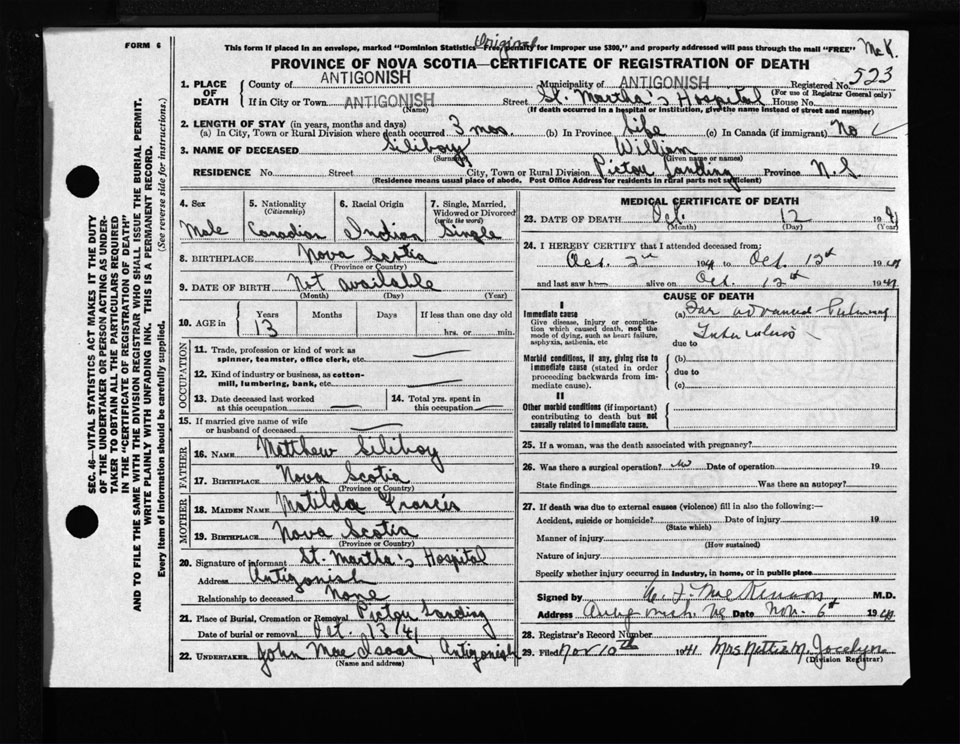 FORM 6
This form if placed in an envelope, marked "Dominion Statistics Free, penalty for improper use $300," and properly addressed will pass through the mail "FREE"
Original
McK.
PROVINCE OF NOVA SCOTIA—CERTIFICATE OF REGISTRATION OF DEATH
1. PLACE OF DEATH County of ANTIGONISH Municipality of ANTIGONISH Registered No. 523
(For use of Registrar General only)
If in City or Town ANTIGONISH Street St. Martha's Hospital House No.
(Name) (If death occurred in a hospital or institution, give the name instead of street and number)
2. LENGTH OF STAY (in years, months and days)
(a) In City, Town or Rural Division where death occurred 3 mos (b) In Province Life (c) In Canada (if immigrant) No
3. NAME OF DECEASED Siliboy William
(Surname) (Given name or names)
RESIDENCE No. Street City, Town or Rural Division Pictou Landing Province N.S.
(Residence means usual place of abode. Post Office Address for residents in rural parts not sufficient)
4. Sex Male
5. Nationality (Citizenship) Canadian
6. Racial Origin Indian
7. Single, Married, Widowed or Divorced (write the word) Single
8. BIRTHPLACE Nova Scotia
(Province or Country)
9. DATE OF BIRTH Not available
(Month) (Day) (Year)
10. AGE in Years Months Days If less than one day
13 hrs. or min.
OCCUPATION
11. Trade, profession or kind of work as spinner, teamster, office clerk, etc.
12. Kind of industry or business, as cotton-mill, lumbering, bank, etc.
13. Date deceased last worked at this occupation
14. Total yrs. spent in this occupation
15. If married give name of wife or husband of deceased
FATHER
16. NAME Matthew Siliboy
17. BIRTHPLACE Nova Scotia
(Province or Country)
MOTHER
18. MAIDEN NAME Matilda Francis
19. BIRTHPLACE Nova Scotia
(Province or Country)
20. Signature of informant St. Martha's Hospital
Address Antigonish
Relationship to deceased None
21. Place of Burial, Cremation or Removal Pictou Landing
Date of burial or removal Oct. 13/41
22. UNDERTAKER John MacIsaac, Antigonish
(Name and address)
MEDICAL CERTIFICATE OF DEATH
23. DATE OF DEATH Oct. 12 1941
(Month) (Day) (Year)
24. I HEREBY CERTIFY that I attended deceased from:
Oct. 2nd 1941 to Oct. 12th 1941
and last saw him alive on Oct. 12th 1941
CAUSE OF DEATH
I
Immediate cause
Give disease, injury or complication which caused death, not the mode of dying, such as heart failure, asphyxia, asthenia, etc
(a) Far advanced Pulmonary
Tuberculosis
due to
Morbid conditions, if any, giving rise to immediate cause (stated in order proceeding backwards from immediate cause).
(b)
due to
(c)
II
Other morbid conditions (if important) contributing to death but not causally related to immediate cause.
25. If a woman, was the death associated with pregnancy?
26. Was there a surgical operation? No Date of operation 19
State findings Was there an autopsy?
27. If death was due to external causes (violence) fill in also the following:—
Accident, suicide or homicide? Date of injury 19
(State which)
Manner of injury
(How sustained)
Nature of injury
Specify whether injury occurred in industry, in home, or in public place
Signed by M.D.
Address Antigonish NS Date Nov. 6th 1941
28. Registrar's Record Number
29. Filed Nov 10th 1941 Mrs Nettie M. Jocelyn
(Division Registrar)
SEC. 46—VITAL STATISTICS ACT MAKES IT THE DUTY
OF THE UNDERTAKER OR PERSON ACTING AS UNDER-
TAKER TO OBTAIN ALL THE PARTICULARS REQUIRED
IN THE "CERTIFICATE OF REGISTRATION OF DEATH"
AND TO FILE THE SAME WITH THE DIVISION REGISTRAR WHO SHALL ISSUE THE BURIAL PERMIT.
WRITE PLAINLY WITH UNFADING INK. THIS IS A PERMANENT RECORD.
Every item of Information should be carefully supplied. (See reverse side for instructions.)